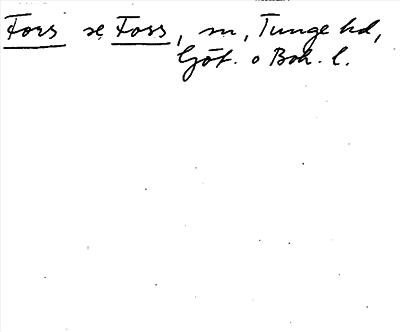 Fors se Foss, sn, Tunge hd,
Göt. o Boh. l.